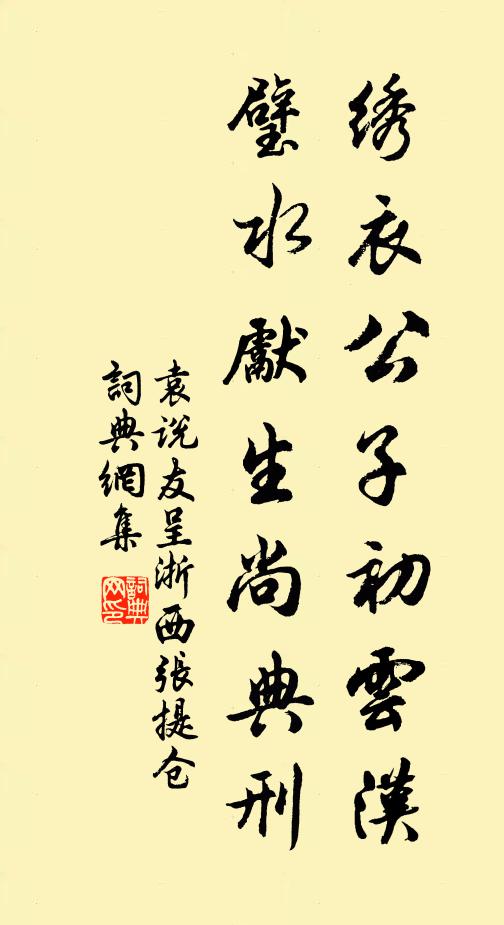 绣衣公子初雲漢
璧水獻生尚典刑
袁说友呈浙西張提仓
詞典網集
詞典網印